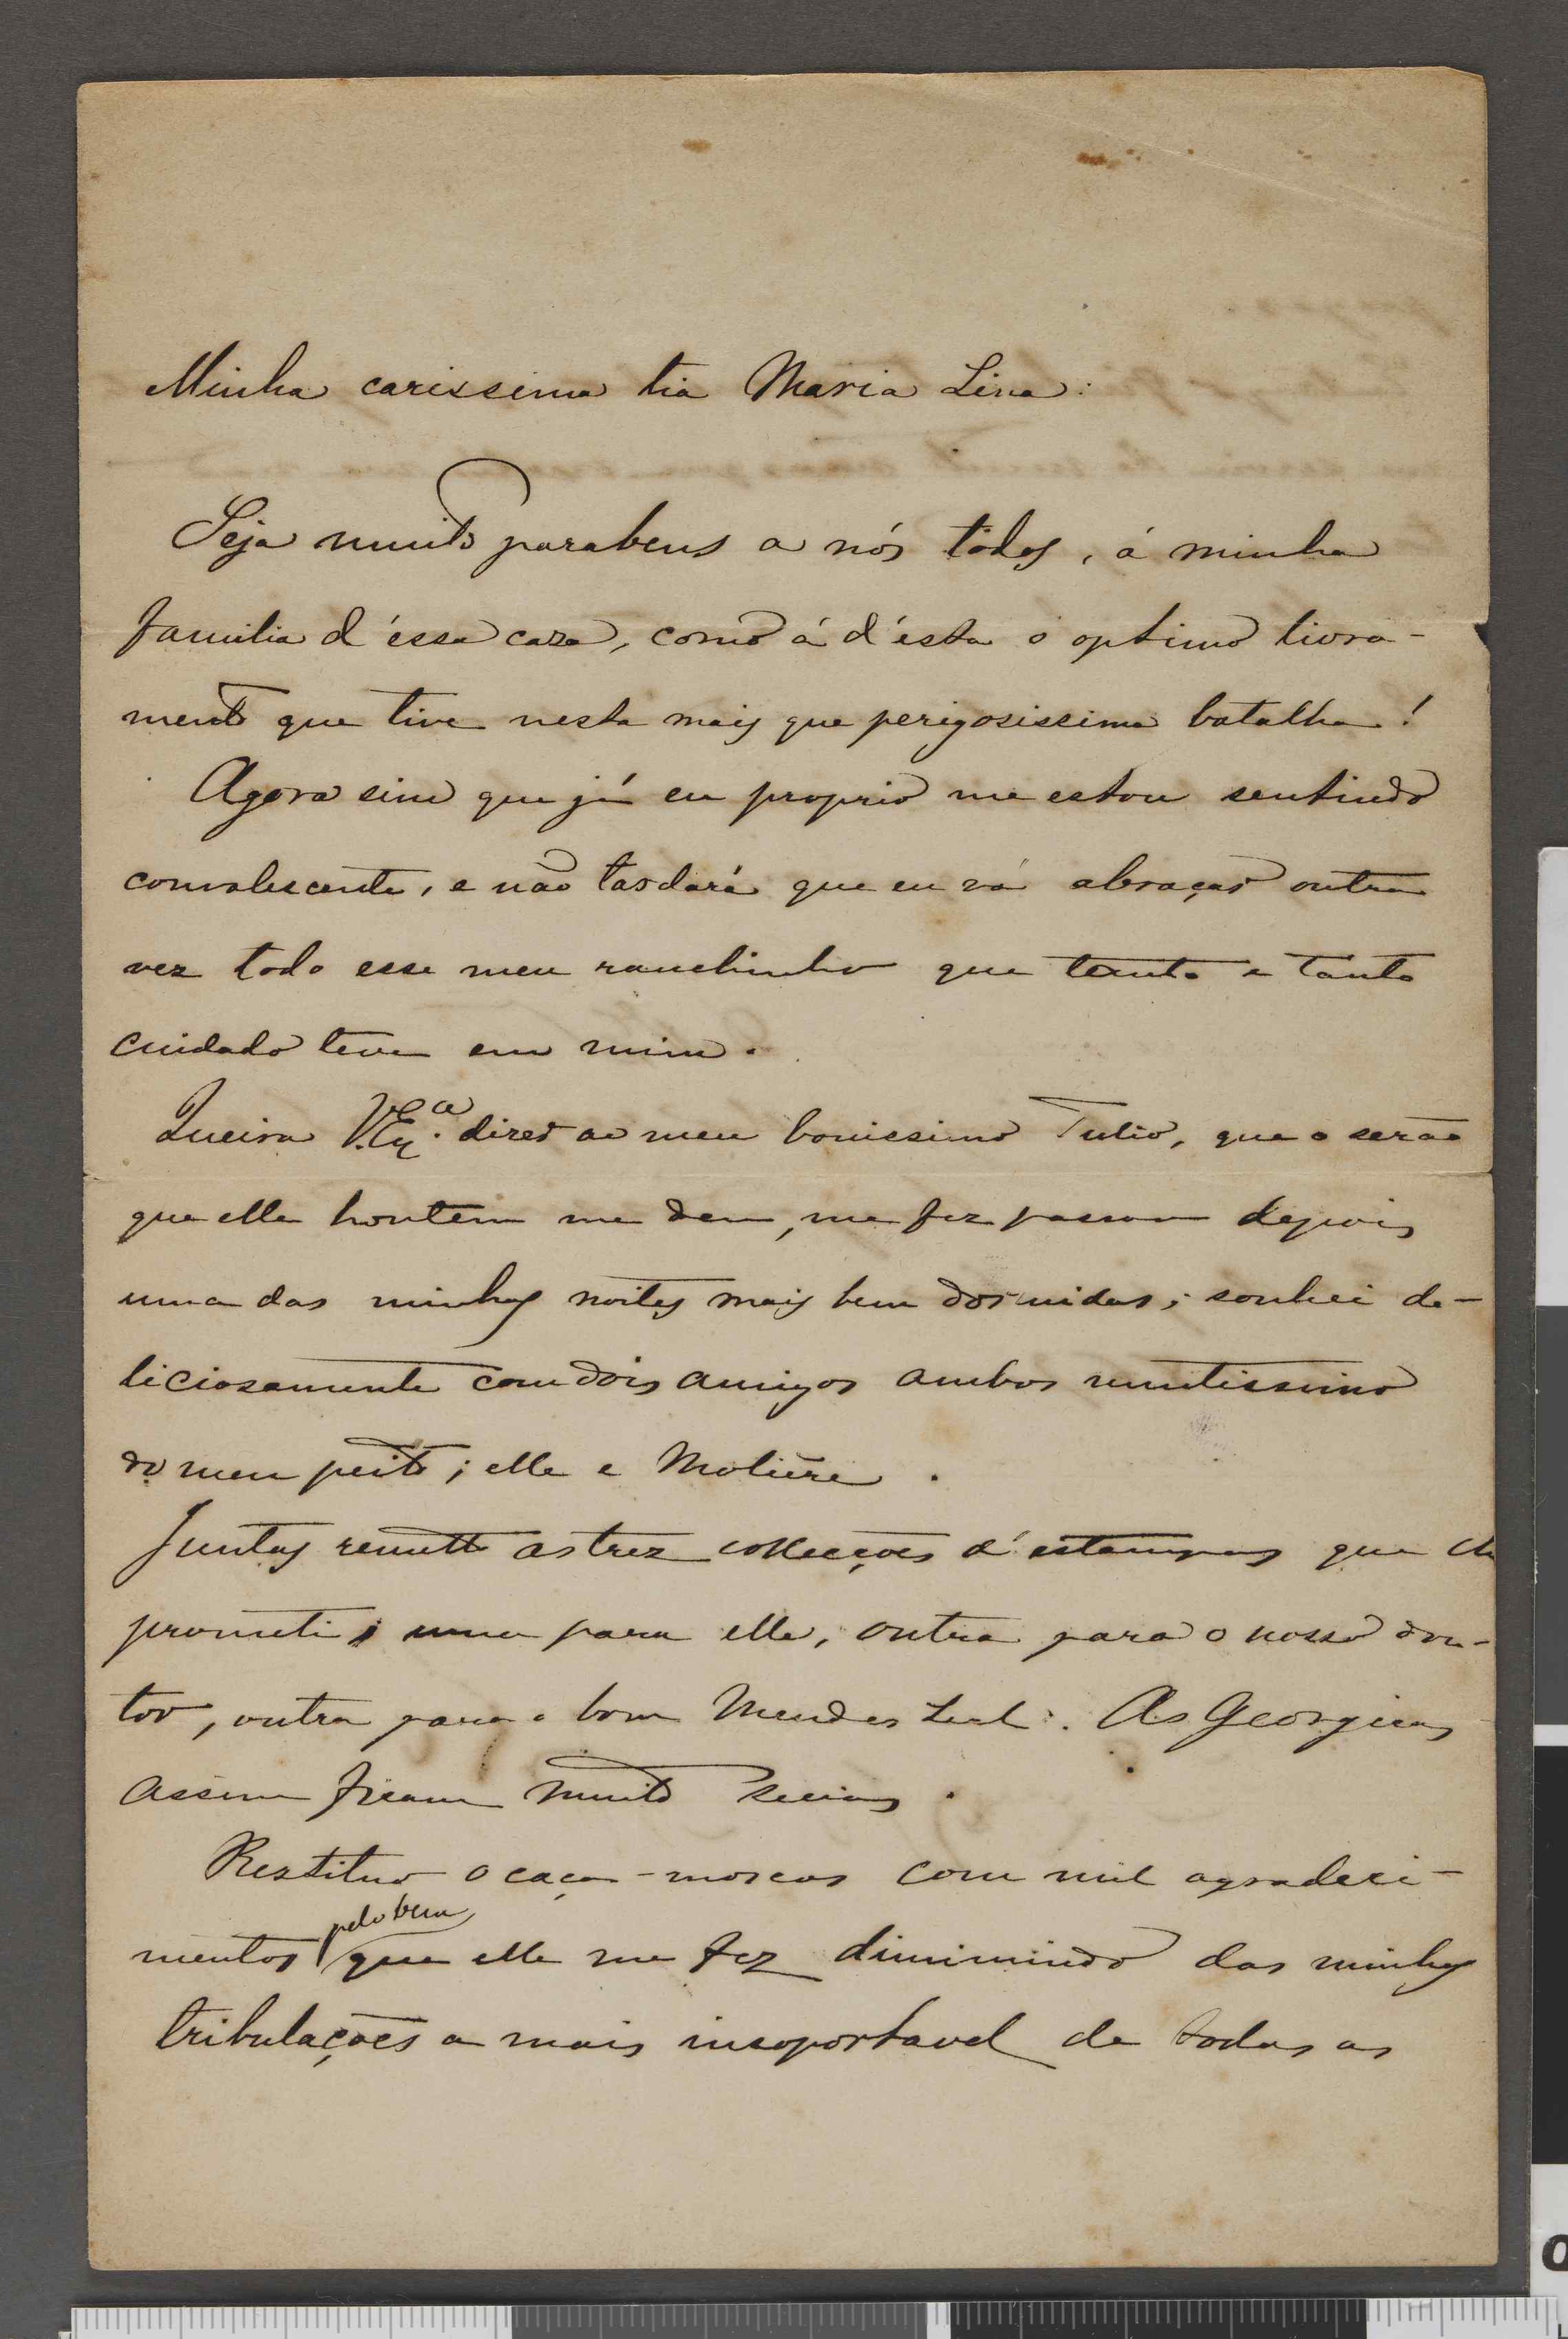 Minha carissima tia Maria Lina:
Seja muito parabens a nós todos, á minha
familia d'éssa caza, como á d'ésta o optimo livra-
mento que tive nesta mais que perigosissima batalha!
Agora sim que já eu proprio me estou sentindo
convalescente, e não tardará que eu vá abraçar outra
vez todo esse meu ranchinho que tanto e tanto
cuidado teve em mim.
Queira V. Ex.ca dizer ao meu bonissimo Tulio, que o serão
que elle hontem me deu, me fez passar depois
uma das minhas noites mais bem dormidas; sonhei de-
liciosamente com dois amigos ambos muitissimo
do meu peito; elle e Molière.
Juntas remetto as trez collecções d'estampas que lhe
prometi; uma para elle, outra para o nosso dou-
tor, outra para o bom Mendes Leal. As Georgicas
assim ficam muito secias.
Restituo o caça-moscas com mil agradeci-
mentos pelo bem que elle me fez diminuindo das minhas
tribulações a mais insoportavel de todas as